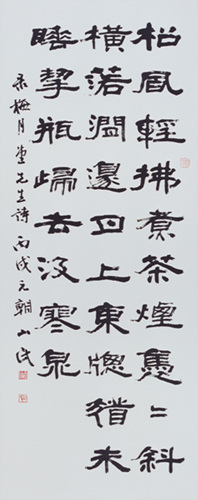 松風輕拂煮茶煙裊〻斜
橫落澗邊月上東牕猶未
睡挈瓶歸去汲寒泉
梅月堂先生詩 丙戌元朝 山民